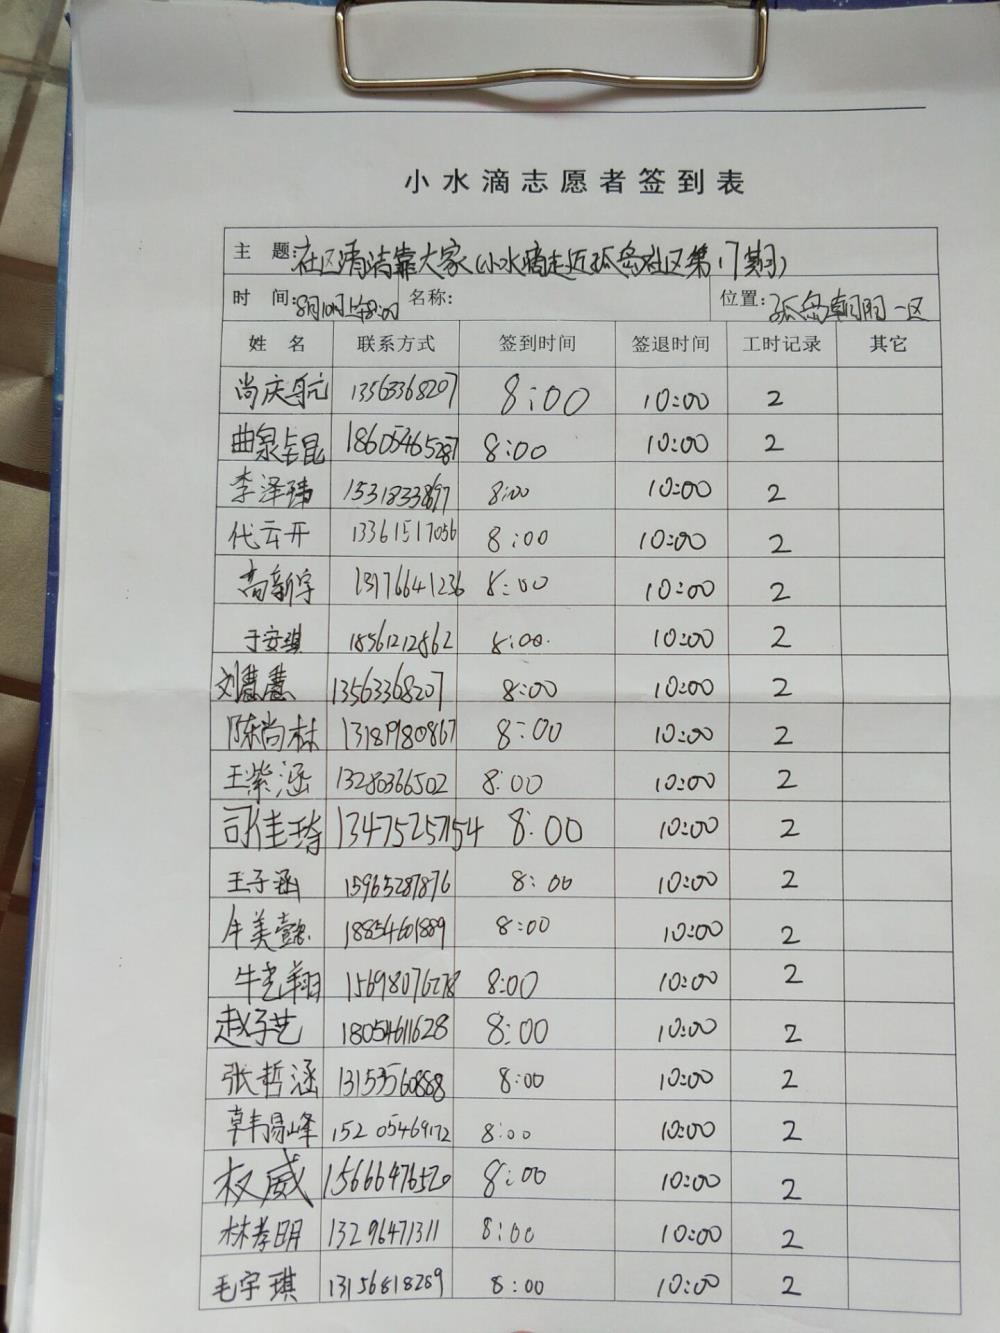 小水滴志愿者签到表
主 题: 社区清洁靠大家(小水滴走近孤岛社区第17期)
时 间: 8月10日上午8:00 名称: 位置: 孤岛朝阳一区
姓 名 联系方式 签到时间 签退时间 工时记录 其它
尚庆 13563368207 8:00 10:00 2
曲泉 18605465287 8:00 10:00 2
李泽玮 1531833897 8:00 10:00 2
代云开 13361517056 8:00 10:00 2
高新宇 13176641236 8:00 10:00 2
于安琪 18561212862 8:00 10:00 2
刘慧慧 13563368207 8:00 10:00 2
陈尚林 13189980867 8:00 10:00 2
王紫涵 13280366502 8:00 10:00 2
司佳琦 13475257154 8:00 10:00 2
王子涵 15965287876 8:00 10:00 2
牛美懿 18854601889 8:00 10:00 2
牛艺翔 15698076278 8:00 10:00 2
赵子艺 18054611628 8:00 10:00 2
张哲涵 13153560888 8:00 10:00 2
韩易峰 15205469172 8:00 10:00 2
权威 15666476520 8:00 10:00 2
林孝明 13296471311 8:00 10:00 2
毛宇琪 13156818289 8:00 10:00 2